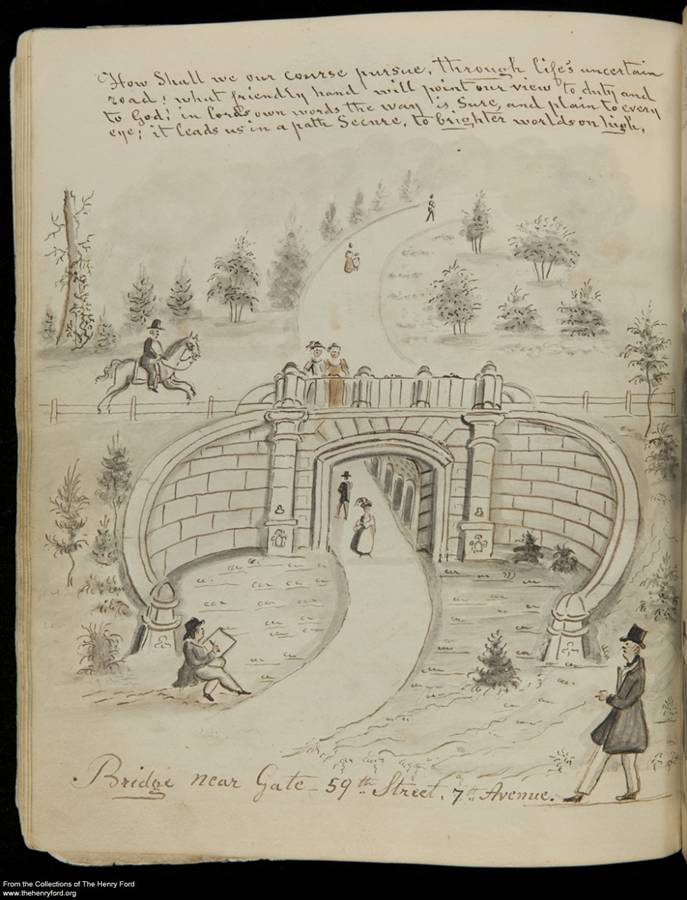 How Shall we our course pursue, through life's uncertain
road! what friendly hand will point our view to duty and
to God; in Lord's own words the way is Sure, and plain to every
eye; it leads us in a path Secure, to brighter worlds on high.
Bridge near Gate - 59th Street. 7th Avenue.
From the Collections of The Henry Ford
www.thehenryford.org